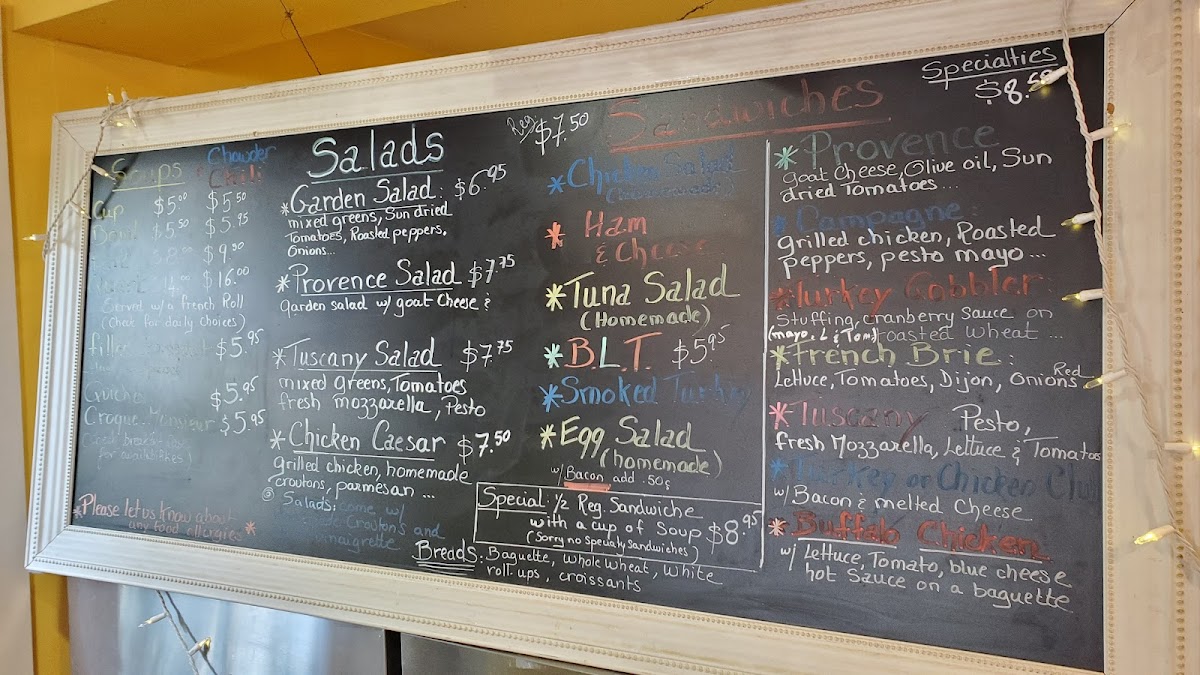 Soups
Chowder
Chili
Cup $5.00 $5.50
Bowl $5.50 $5.95
$8.00 $9.50
$16.00
Served w/a French Roll
(Check for daily choices)
$5.95
Quiches $5.95
Croque Monsieur $5.95
*Please let us know about
any food allergies*
Salads
*Garden Salad: $6.95
mixed greens, Sun dried
Tomatoes, Roasted peppers,
Onions...
*Provence Salad $7.75
garden salad w/ goat cheese &
*Tuscany Salad $7.75
mixed greens, Tomatoes
fresh mozzarella, Pesto
*Chicken Caesar $7.50
grilled chicken, homemade
croutons, parmesan ...
Salads: come w/
Croutons and
vinaigrette
Sandwiches
Reg. $7.50
*Chicken Salad
(homemade)
*Ham
& Cheese
*Tuna Salad
(Homemade)
*B.L.T. $5.95
*Smoked Turkey
*Egg Salad
(homemade)
w/ Bacon add .50¢
Special: 1/2 Reg. Sandwiche
with a cup of Soup $8.95
(Sorry no Specialty Sandwiches)
Breads: Baguette, whole wheat, white
roll-ups, croissants
Specialties
$8.50
*Provence
goat Cheese, Olive oil, Sun
dried Tomatoes ...
*Campagne:
grilled chicken, Roasted
peppers, pesto mayo ...
*Turkey Gobbler:
Stuffing, cranberry sauce on
(mayo. L & Tom) roasted wheat ...
*French Brie:
Lettuce, Tomatoes, Dijon, Red Onions
*Tuscany Pesto,
fresh Mozzarella, Lettuce & Tomatoes
*Turkey or Chicken Club
w/ Bacon & melted Cheese
*Buffalo Chicken
w/ Lettuce, Tomato, blue cheese
hot Sauce on a baguette